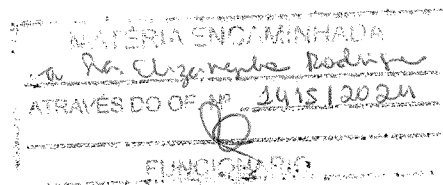 MATÉRIA ENCAMINHADA
a Rodrigues
ATRAVÉS DO OF. Nº 1415/2024
FUNCIONÁRIO